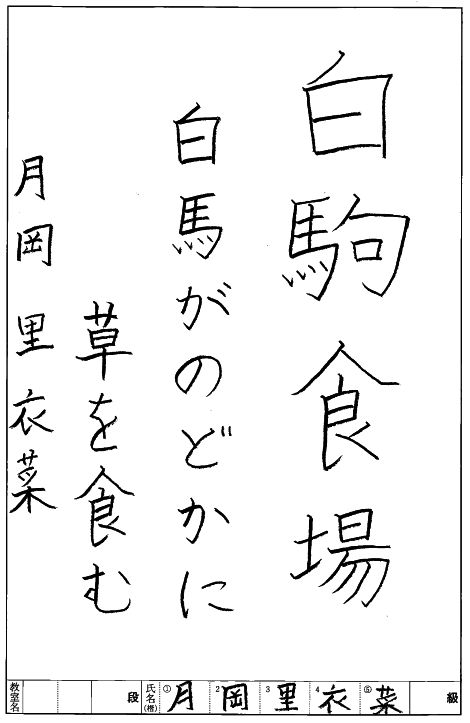 白駒食場
白馬がのどかに
草を食む
月岡里衣菜
級 ⑤菜 4衣 3里 2岡 ①月 氏名(楷) 段 教室名